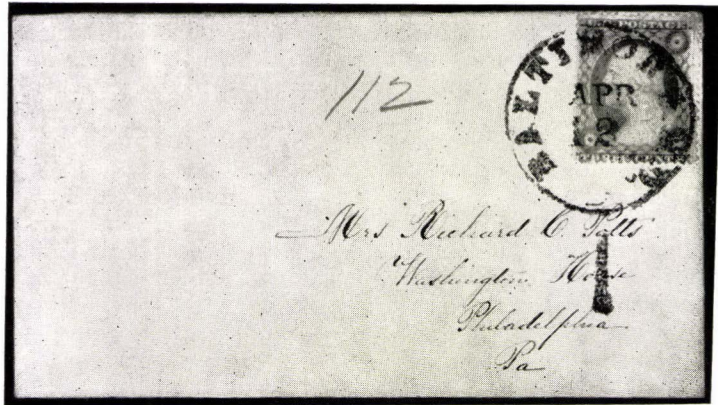 U.S. POSTAGE
BALTIMORE Md.
APR
2
112
Mrs Richard C. Potts
Washington House
Philadelphia
Pa